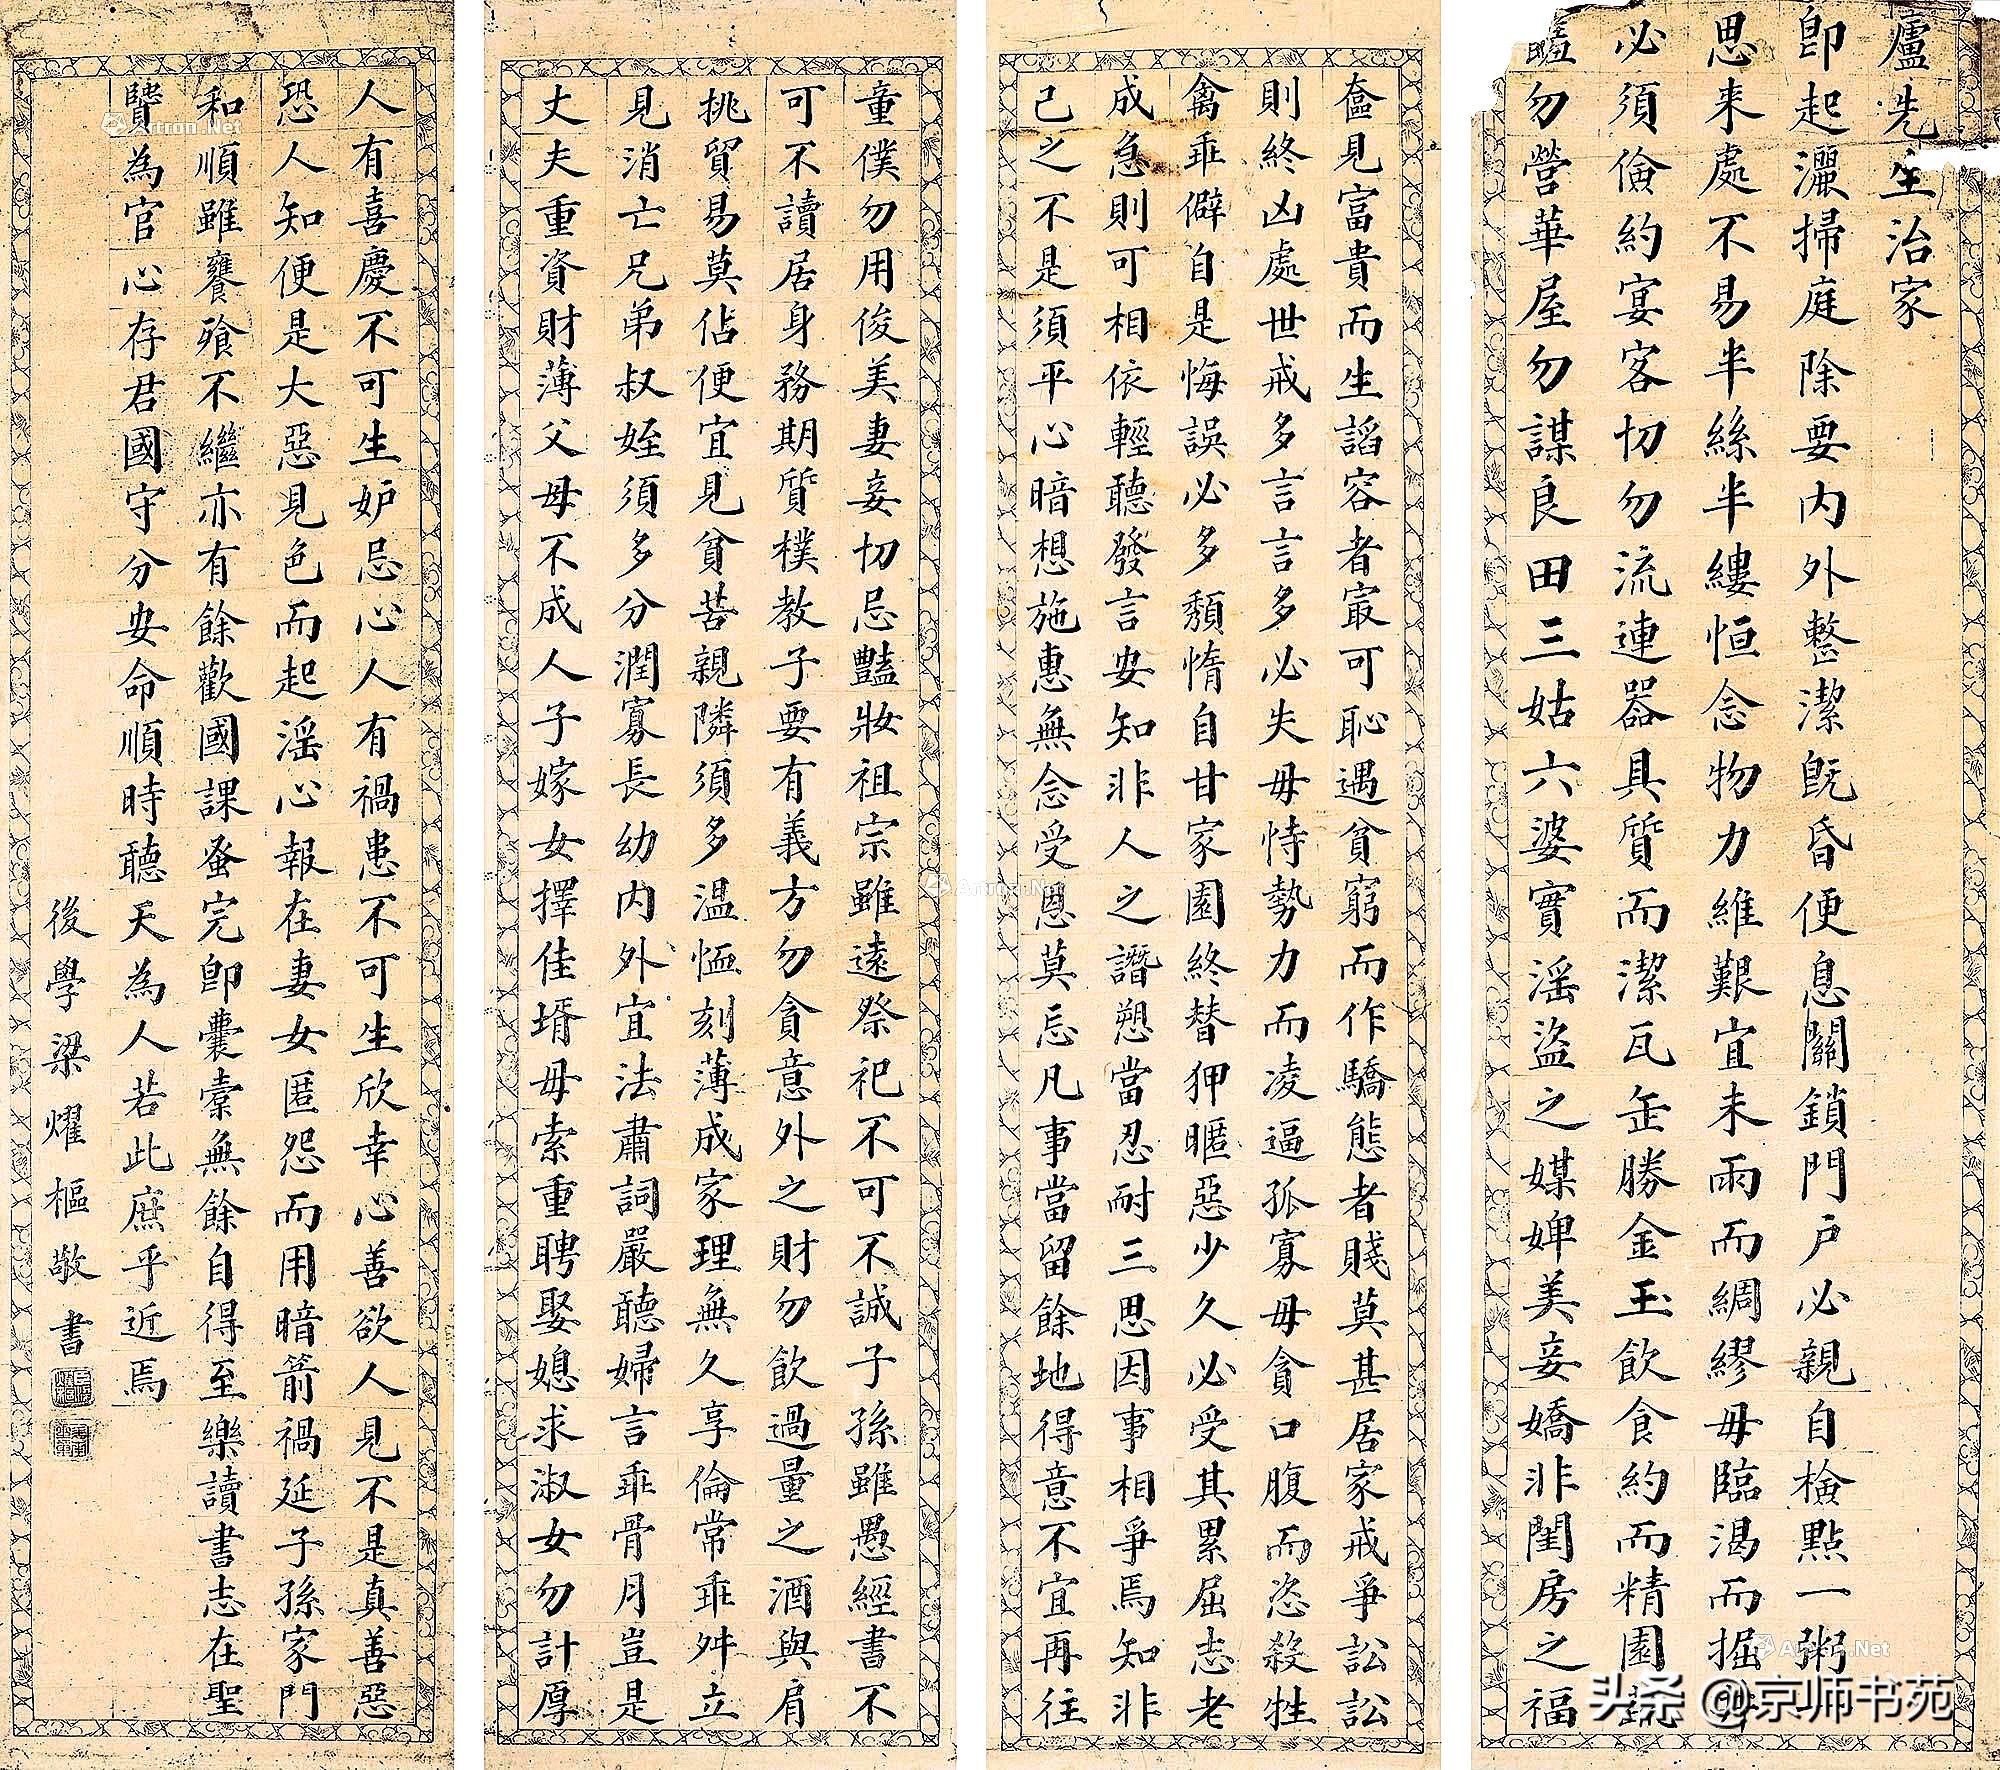 廬先生治家
即起灑掃庭除要內外整潔既昏便息關鎖門戶必親自檢點一粥
思來處不易半絲半縷恒念物力維艱宜未雨而綢繆毋臨渴而掘
必須儉約宴客切勿流連器具質而潔瓦缶勝金玉飲食約而精園蔬
勿營華屋勿謀良田三姑六婆實淫盜之媒婢美妾嬌非閨房之福
奩見富貴而生謟容者寂可恥遇貧窮而作驕態者賤莫甚居家戒爭訟訟
則終凶處世戒多言言多必失毋恃勢力而凌逼孤寡毋貪口腹而恣殺牲
禽乖僻自是悔誤必多頹惰自甘家園終替狎暱惡少久必受其累屈志老
成急則可相依輕聽發言安知非人之譖愬當忍耐三思因事相爭焉知非
己之不是須平心暗想施惠無念受恩莫忘凡事當留餘地得意不宜再往
童僕勿用俊美妻妾切忌豔妝祖宗雖遠祭祀不可不誠子孫雖愚經書不
可不讀居身務期質樸教子要有義方勿貪意外之財勿飲過量之酒與肩
挑貿易莫佔便宜見貧苦親隣須多溫恤刻薄成家理無久享倫常乖舛立
見消亡兄弟叔姪須多分潤寡長幼內外宜法肅詞嚴聽婦言乖骨月豈是
丈夫重資財薄父母不成人子嫁女擇佳壻毋索重聘娶媳求淑女勿計厚
人有喜慶不可生妒忌心人有禍患不可生欣幸心善欲人見不是真善惡
恐人知便是大惡見色而起淫心報在妻女匿怨而用暗箭禍延子孫家門
和順雖饔飱不繼亦有餘歡國課蚤完即囊橐無餘自得至樂讀書志在聖
賢為官心存君國守分安命順時聽天為人若此庶乎近焉
後學梁燿樞敬書
Artron.Net
Artron.Net
Artron.Net
头条 @京师书苑